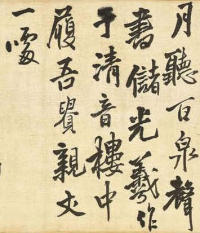 月聽百泉聲
書儲光羲作
于清音樓中
履吾賢親丈
一噱